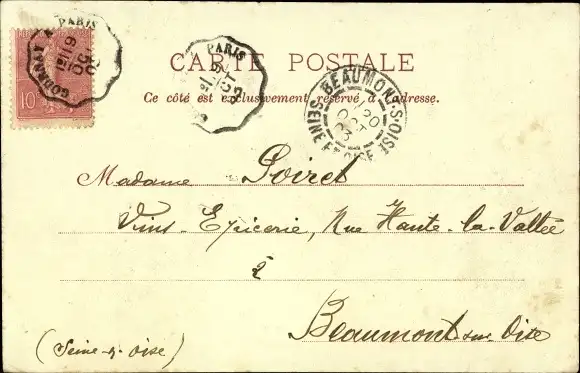 CARTE POSTALE
Ce côté est exclusivement réservé à l'adresse.
GOURNAY A PARIS
PARIS
BEAUMONT-S-OISE
20
OCT
03
SEINE ET OISE
10
Madame Poiret
Vins-Epicerie, Rue Haute-la-Vallée
à
Beaumont sur Oise
(Seine-&-Oise)